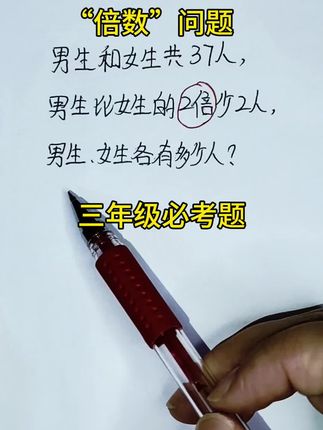 “倍数”问题
男生和女生共37人，
男生比女生的2倍少2人，
男生、女生各有多少人？
三年级必考题